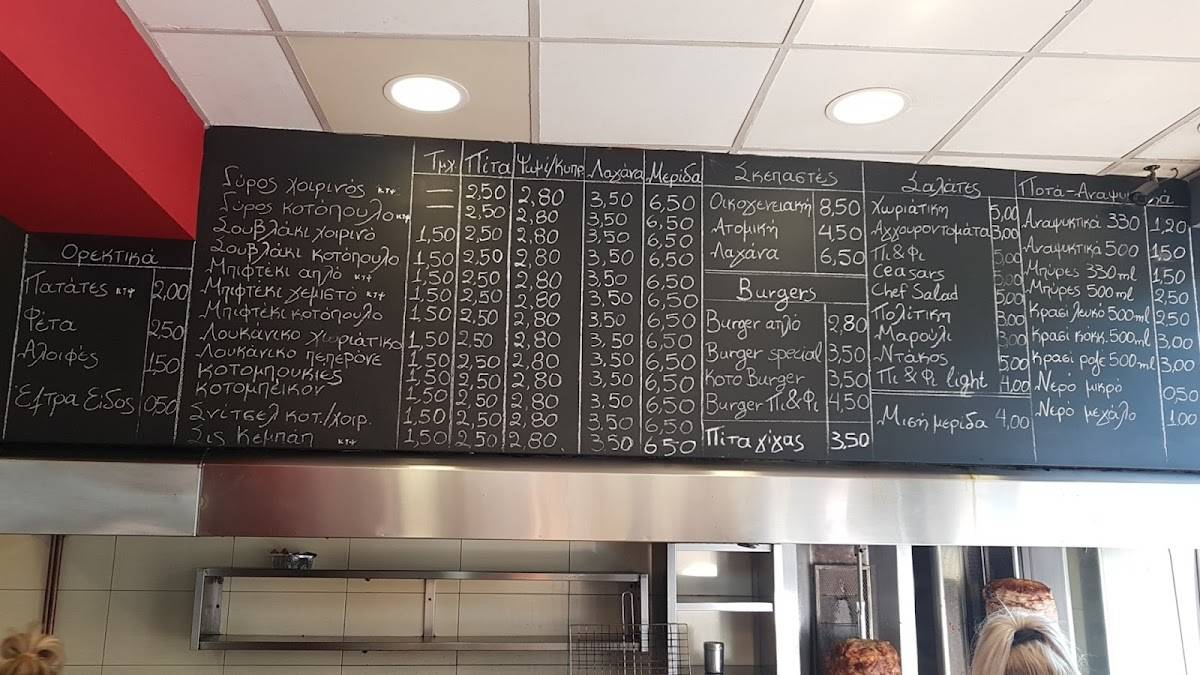 Ορεκτικά
Πατάτες κτψ 2,00
Φέτα 2,50
Αλοιφές 1,50
Έξτρα Είδος 0,50
Τμχ Πίτα Ψωμί/Κυπρ. Λαχάνα Μερίδα
Γύρος χοιρινός κτψ — 2,50 2,80 3,50 6,50
Γύρος κοτόπουλο κτψ — 2,50 2,80 3,50 6,50
Σουβλάκι χοιρινό 1,50 2,50 2,80 3,50 6,50
Σουβλάκι κοτόπουλο 1,50 2,50 2,80 3,50 6,50
Μπιφτέκι απλό κτψ 1,50 2,50 2,80 3,50 6,50
Μπιφτέκι γεμιστό κτψ 1,50 2,50 2,80 3,50 6,50
Μπιφτέκι κοτόπουλο 1,50 2,50 2,80 3,50 6,50
Λουκάνικο χωριάτικο 1,50 2,50 2,80 3,50 6,50
Λουκάνικο πεπερόνε 1,50 2,50 2,80 3,50 6,50
Κοτομπουκιές 1,50 2,50 2,80 3,50 6,50
Κοτομπέικον 1,50 2,50 2,80 3,50 6,50
Σνίτσελ κοτ./χοιρ. 1,50 2,50 2,80 3,50 6,50
Σις Κεμπάπ κτψ 1,50 2,50 2,80 3,50 6,50
Σκεπαστές
Οικογενειακή 8,50
Ατομική 4,50
Λαχάνα 6,50
Burgers
Burger απλό 2,80
Burger special 3,50
Κοτο Burger 3,50
Burger Πι&Φι 4,50
Πίτα γίγας 3,50
Σαλάτες
Χωριάτικη 5,00
Αγγουροντομάτα 3,00
Πι&Φι 5,00
Ceasars 5,00
Chef Salad 5,00
Πολίτικη 3,00
Μαρούλι 3,00
Ντάκος 5,00
Πι & Φι light 4,00
Μισή μερίδα 4,00
Ποτά-Αναψυκ
Αναψυκτικά 330 1,20
Αναψυκτικά 500 1,50
Μπύρες 330 ml 1,50
Μπύρες 500 ml 2,50
Κρασί λευκό 500 ml 2,50
Κρασί κόκκ. 500 ml 3,00
Κρασί ροζε 500 ml 3,00
Νερό μικρό 0,50
Νερό μεγάλο 1,00